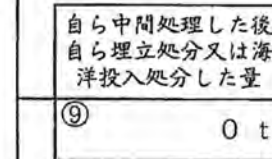 自ら中間処理した後
自ら埋立処分又は海
洋投入処分した量
⑨
0 t